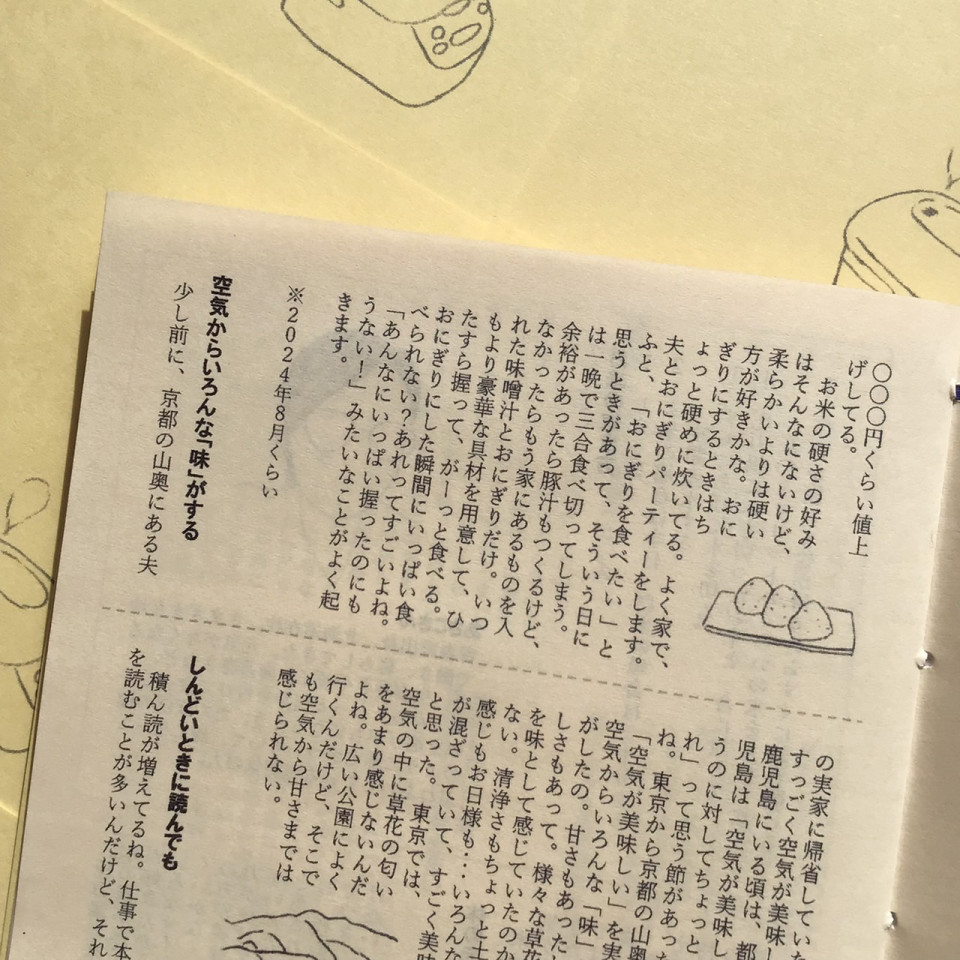 〇〇〇円くらい値上
げしてる。
お米の硬さの好み
はそんなにないけど、
柔らかいよりは硬い
方が好きかな。おに
ぎりにするときはち
ょっと硬めに炊いてる。よく家で、
夫とおにぎりパーティーをします。
ふと、「おにぎりを食べたい」と
思うときがあって、そういう日に
は一晩で三合食べ切ってしまう。
余裕があったら豚汁もつくるけど、
なかったらもう家にあるものを入
れた味噌汁とおにぎりだけ。いつ
もより豪華な具材を用意して、ひ
たすら握って、がーっと食べる。
おにぎりにした瞬間にいっぱい食
べられない？あれってすごいよね。
「あんなにいっぱい握ったのにも
うない！」みたいなことがよく起
きます。
※2024年8月くらい
空気からいろんな「味」がする
少し前に、京都の山奥にある夫
の実家に帰省してい
すっごく空気が美味し
鹿児島にいる頃は、都
児島は「空気が美味し
うのに対してちょっと
れ」って思う節があった
ね。東京から京都の山奥
「空気が美味しい」を実
空気からいろんな「味」
がしたの。甘さもあった
しさもあって。様々な草花
を味として感じていたのか
ない。清浄さもちょっと土
感じもお日様も…いろんな
が混ざっていて、すごく美味
と思った。東京では、
空気の中に草花の匂い
をあまり感じないんだ
よね。広い公園によく
行くんだけど、そこで
も空気から甘さまでは
感じられない。
しんどいときに読んでも
積ん読が増えてるね。仕事で本
を読むことが多いんだけど、それ